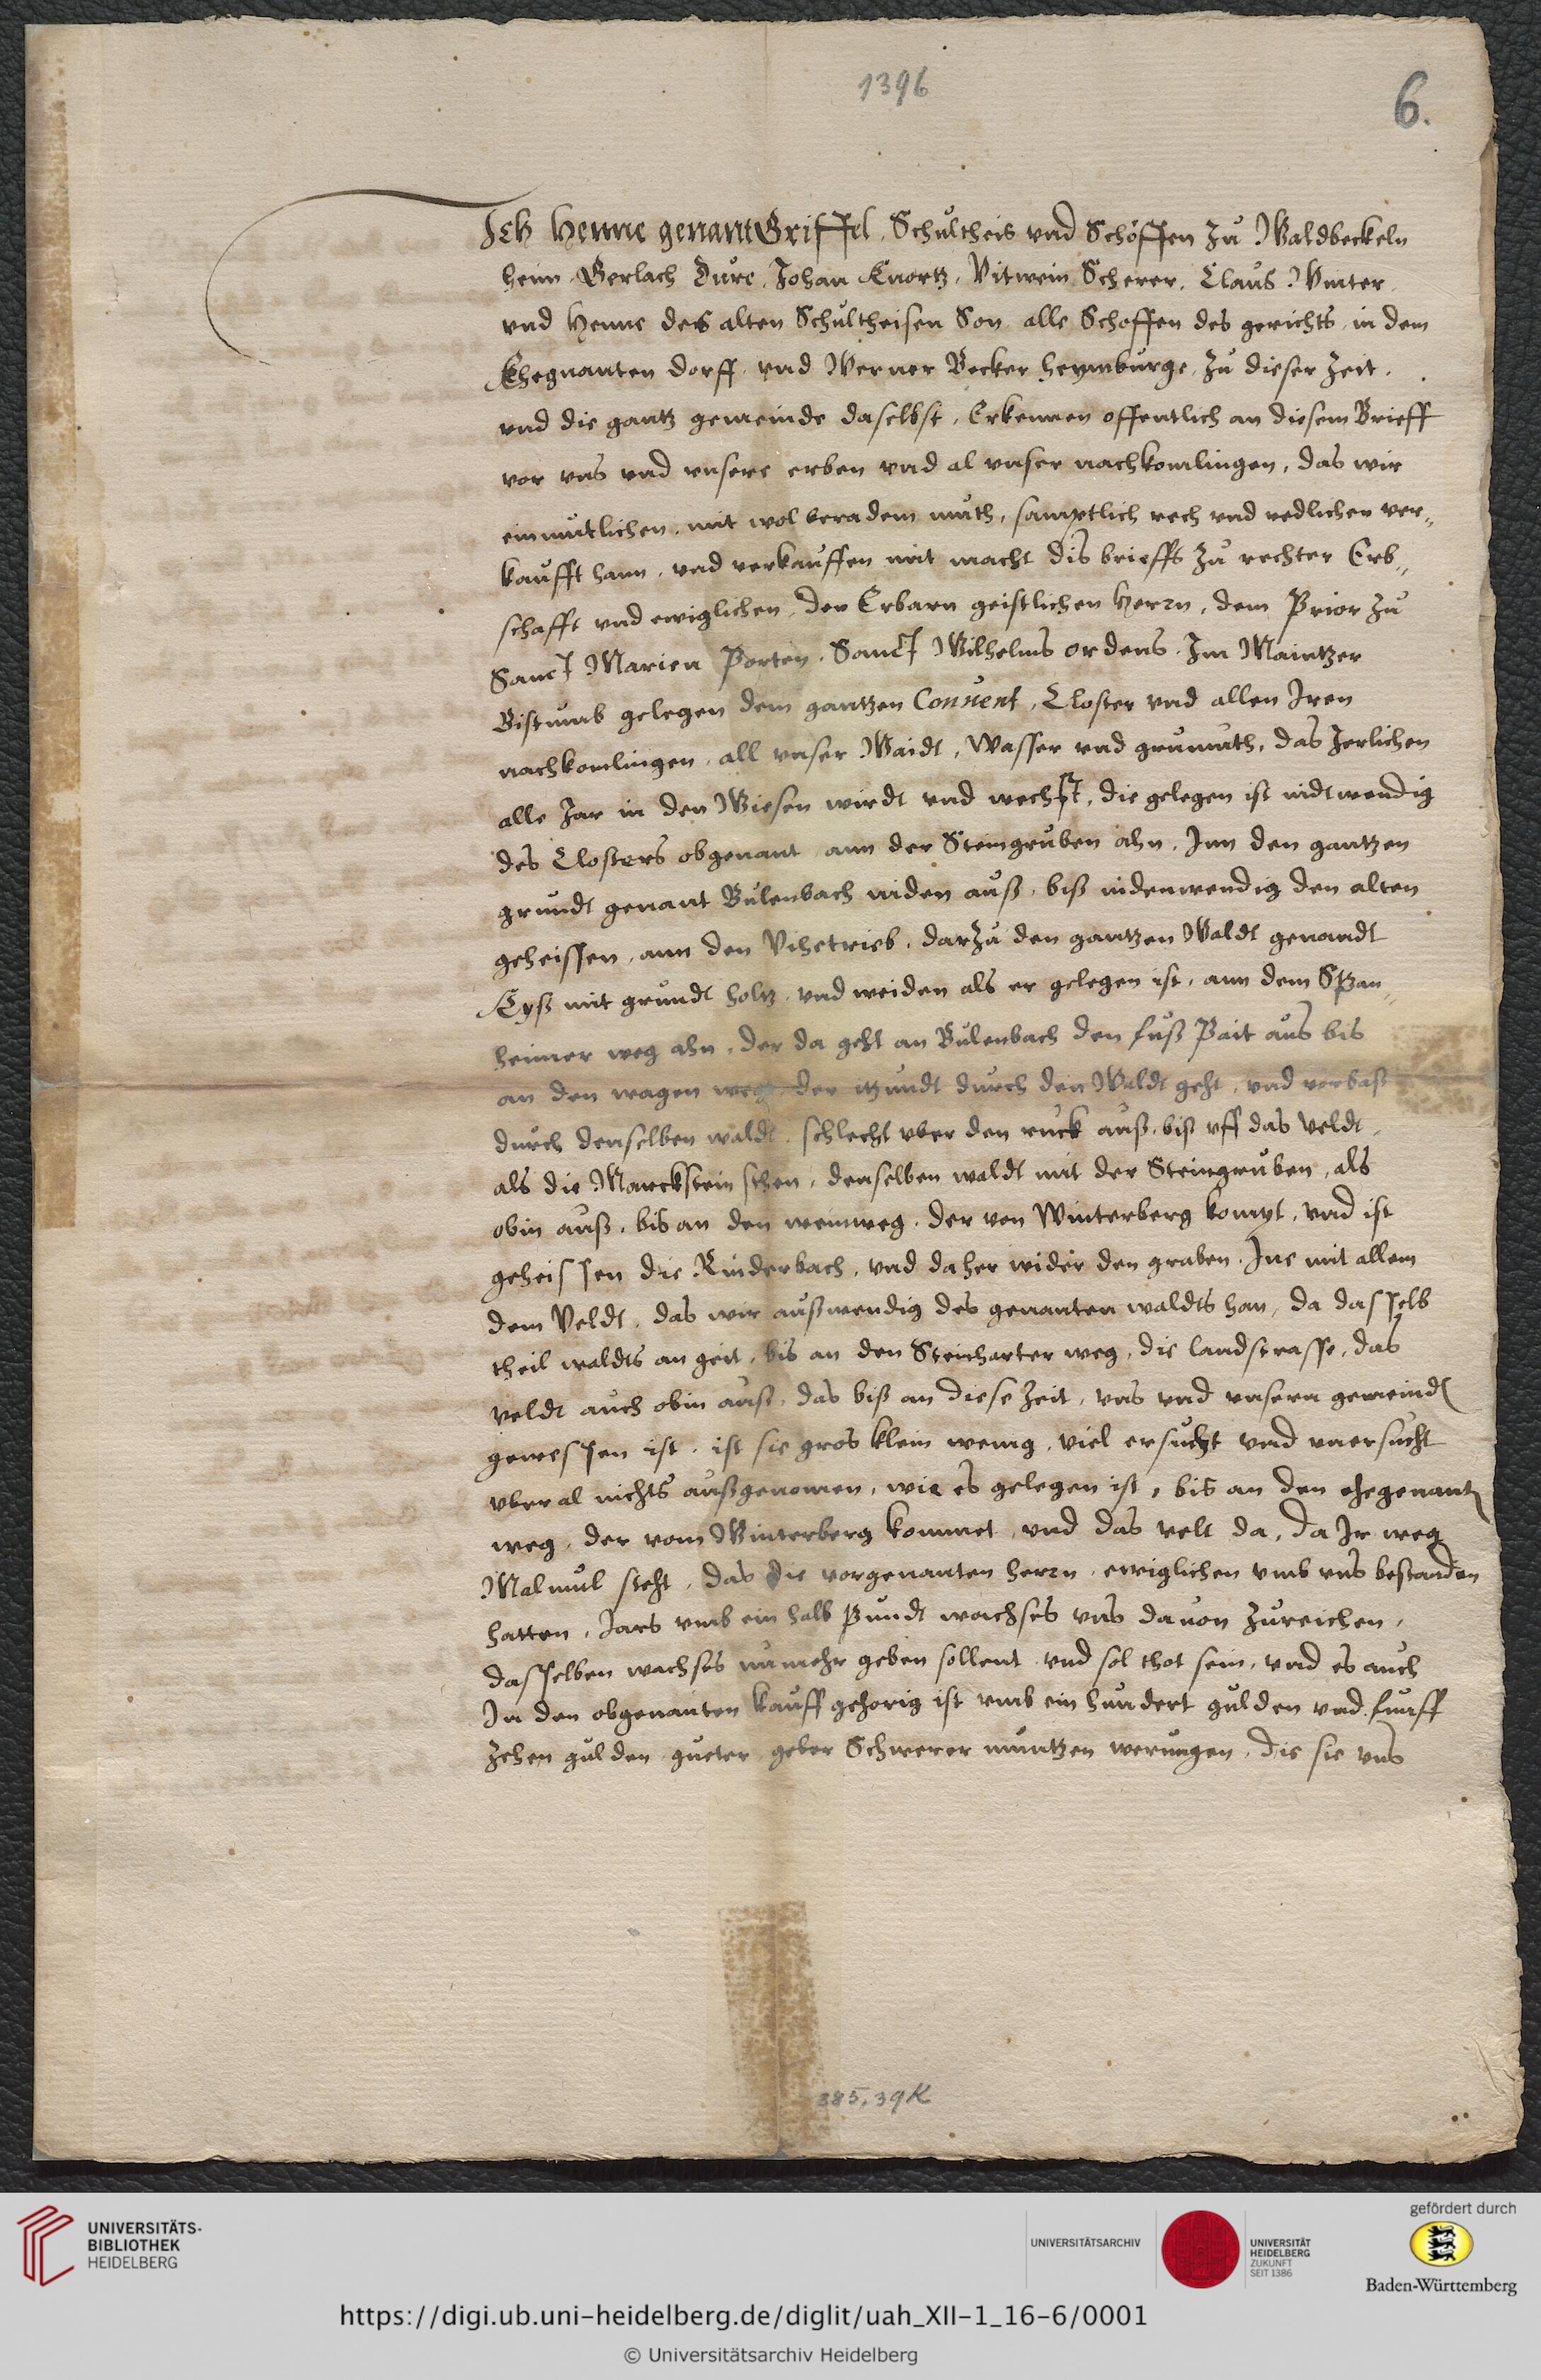 1396
6.
Ich Henne genant Griffel, Schultheis vnd Schöffen zu Waldbeckeln
heim, Gerlach Dure, Johan Knortz, Vitwein Scherer, Claus Winter,
vnd Henne des alten Schultheisen Son alle Schoffen des gerichts in dem
Ehegnanten dorff, vnd Werner Becker heymburge, zu dieser zeit,
vnd die gantz gemeinde daselbst, Erkennen offentlich an diesem Brieff
vor vns vnd vnsere erben vnd al vnser nachkomlingen, das wir
einmutlichen, mit wol beradem muth, samptlich rech vnd redlichen ver„
kaufft hann, vnd verkauffen mit macht dis brieffs zu rechter Erb„
schafft vnd ewiglichen, den Erbarn geistlichen Herrn, dem Prior zu
Sanct Marien Porten, Sanct Wilhelms ordens, Im Maintzer
Bistumb gelegen dem gantzen Conuent, Closter vnd allen Iren
nachkomlingen, all vnser Waidt, Wasser vnd grumath, das Jerlichen
alle Jar in den Wiesen wirdt vnd wechst, die gelegen ist nidtwendig
des Closters obgenant ann der Steingruben ahn, Inn den gantzen
grundt genant Bulenbach niden auß, biß nidenwendig den alten
geheissen, ann den Vihetrieb, darzu den gantzen Waldt genandt
Eyß mit grundt holtz, vnd weiden als er gelegen ist, ann dem Span„
heimer weg ahn, der da geht an Bulenbach den fuß Pait aus bis
an den wagen weg, der itzundt durch den Waldt geht, vnd vorbaß
durch denselben waldt, schlecht vber den ruck auß, biß vff das Veldt,
als die Marckstein sthen, denselben waldt mit der Steingruben, als
obin auß, bis an den weinweg, der von Winterberg kompt, vnd ist
geheissen die Rinderbach, vnd daher wider den graben, Ine mit allem
dem Veldt, das wir außwendig des genanten waldts han, da dasselb
theil waldts an geit, bis an den Steinharter weg, die landstrasse, das
veldt auch obin auß, das biß an diese Zeit, vns vnd vnsern gemeind
gewessen ist, ist sie gros klein wenig, viel ersucht vnd vnersucht
vberal nichts außgenomen, wie es gelegen ist, bis an den ehegenant
weg, der vom Winterberg kommet, vnd das velt da, da Ir weg
Malmul steht, das die vorgenanten herrn, ewiglichen vmb vns bestanden
hatten, Jars vmb ein halb Pundt wachses vns dauon zureichen,
dasselben wachses nu mehr geben sollent vnd sol thot sein, vnd es auch
In den obgenanten kauff gehorig ist vmb ein hundert gulden vnd funff
zehen gulden gueter, geber Schwerer muntzen werungen, die sie vns
385,39K
UNIVERSITÄTS-
BIBLIOTHEK
HEIDELBERG
UNIVERSITÄTSARCHIV
UNIVERSITÄT
HEIDELBERG
ZUKUNFT
SEIT 1386
gefördert durch
Baden-Württemberg
https://digi.ub.uni-heidelberg.de/diglit/uah_XII-1_16-6/0001
© Universitätsarchiv Heidelberg